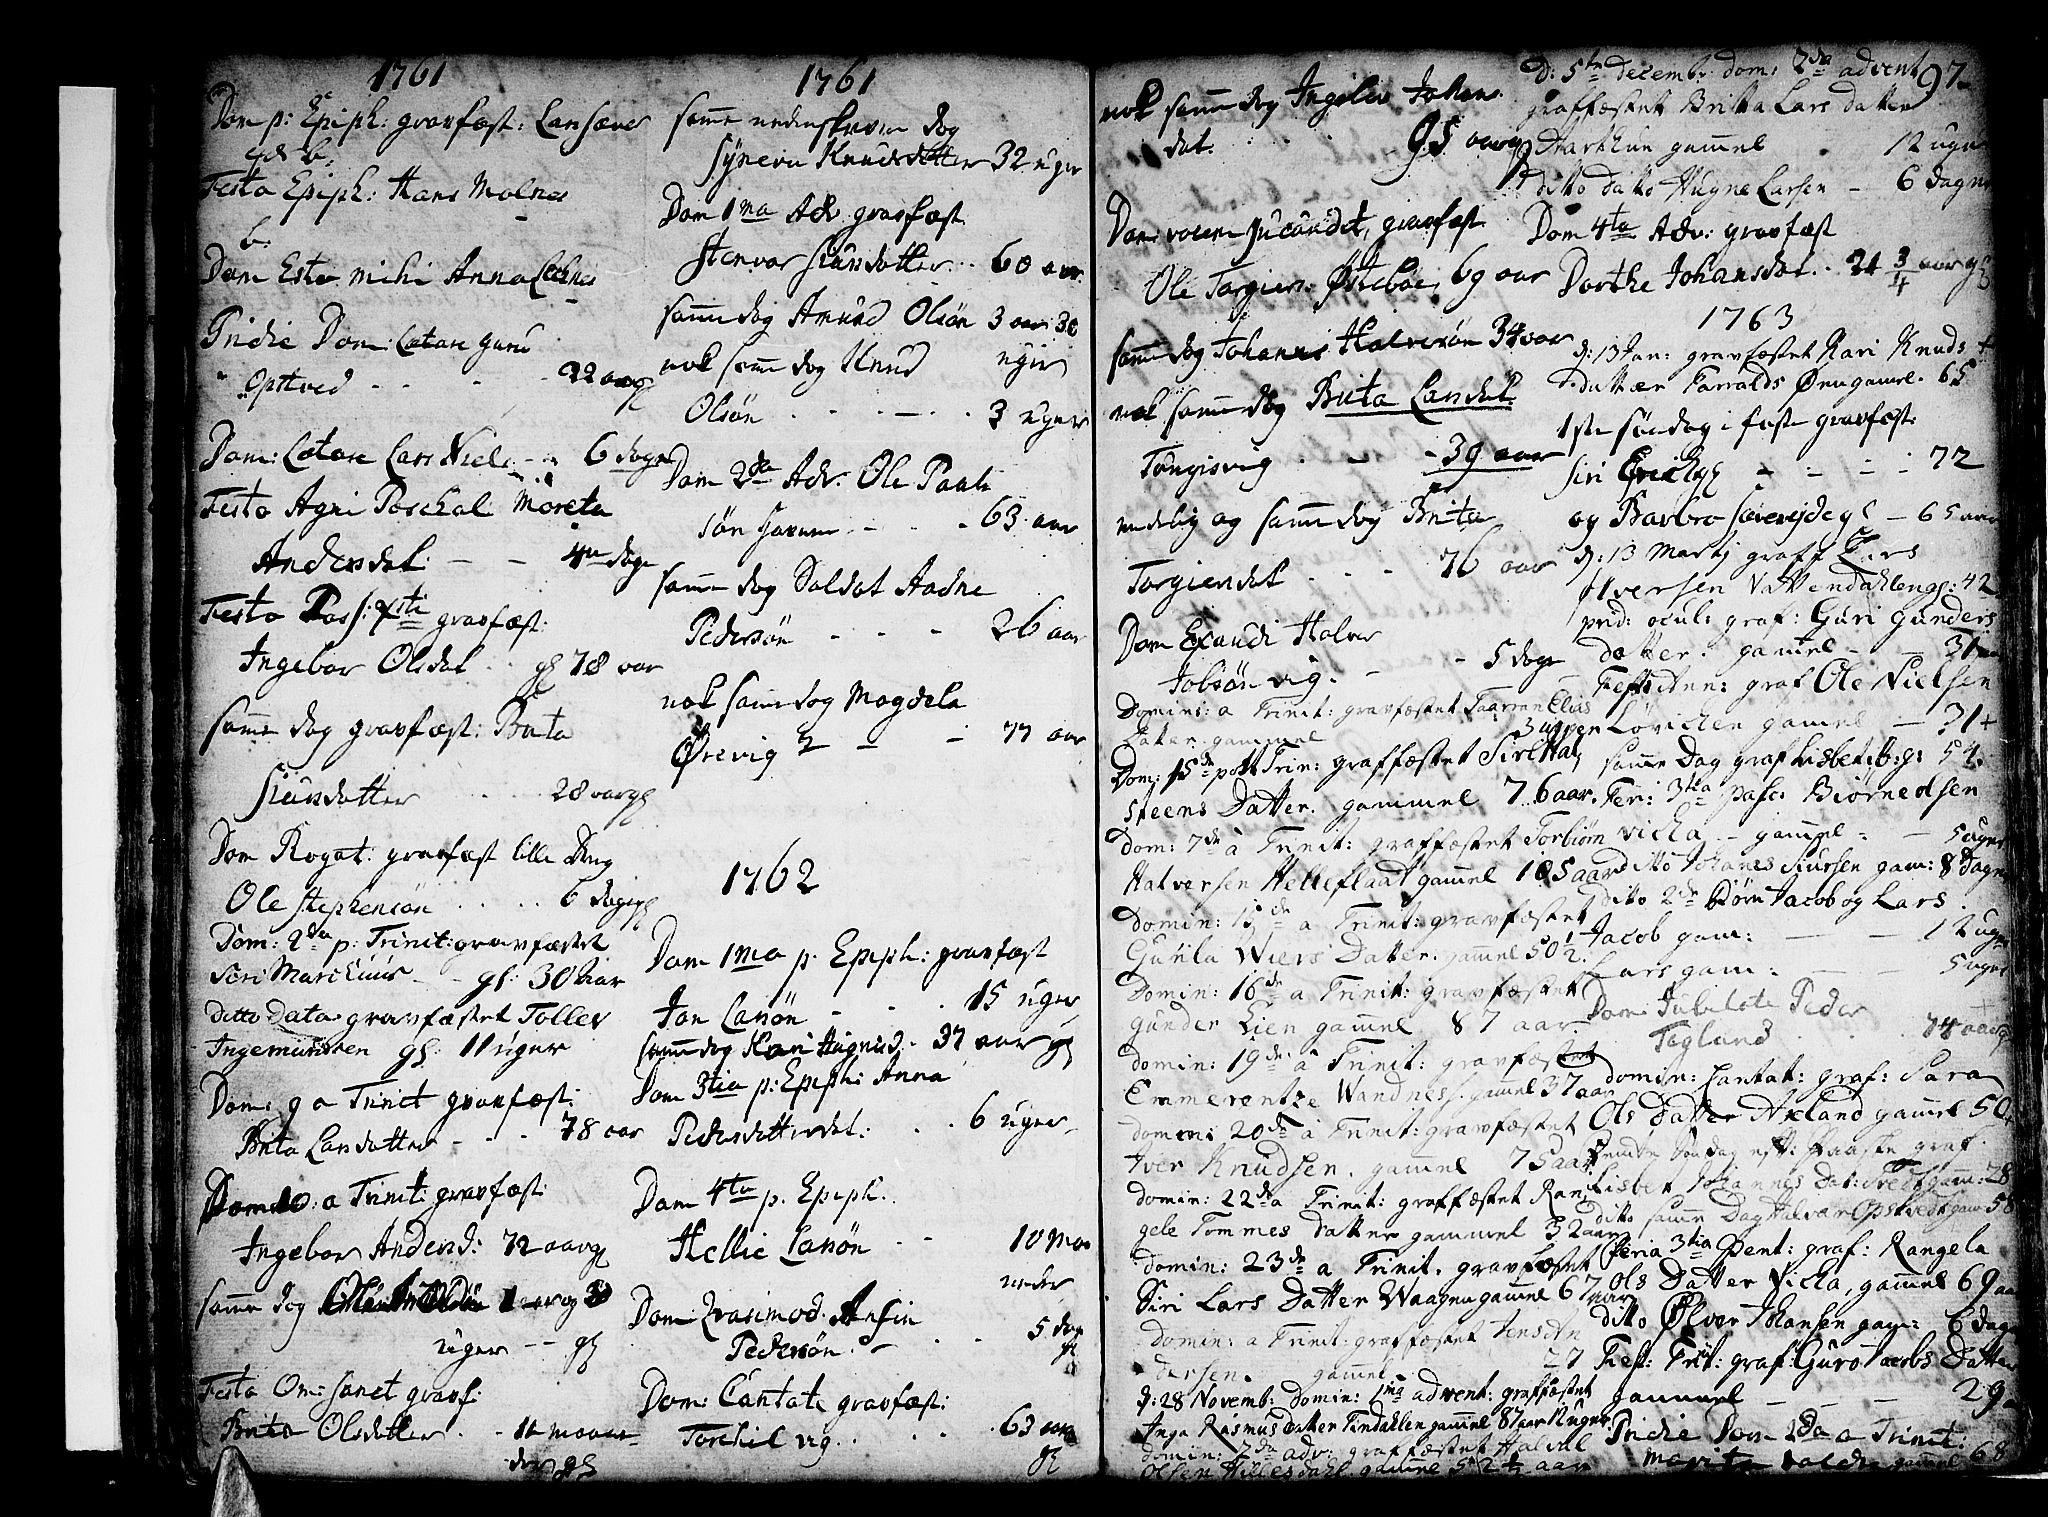 1761
Dom p: Epiph: gravfæst:
Festo Epiph: Hans Molnes
b:
Dom Esto mihi Anna
Pridie Dom: Lætare Guru
Opttved - - - - 22 aar gl
Dom: Lætare Lars Niels - - 6 dage
Festo Agni Paschal Moreta
Andersdat: - - 4 dage
Festo Pass: gravfæst:
Ingebor Olsdat . . gl 78 aar
samme dag gravfæst: Brita
Siursdatter . . . 28 aar gl
Dom Rogat: gravfæst lille
Ole Stephensøn . . . . 6 dage gl
Dom: 2da p: Trinit: gravfæstet
Seri Marckuus - - gl: 30 aar
Ditto Dato gravfæstet Tollev
Ingemundsen gl: 11 uger
Dom: 9 a Trinit gravfæst:
Brita Larsdatter - - - 78 aar
Dom 10: a Trinit: gravfæst:
Ingebor Andersd: 72 aar gl
samme dag
uger - - gl
Festo Om: Sanct gravf:
Brita Olsdatter . . 11 maane
der gl
1761
samme nedenskrevne dag
Syneva Knudsdatter 32 uger
Dom 1ma Adv. gravfæst
Stenvor Siursdatter . . 60 aar
samme dag Amund Olsøn 3 aar 30
uger
nok samme dag Knud
Olsøn . . . - . . 3 uger
Dom 2da Adv. Ole Pauls
søn - - - 63 aar
samme dag Soldat Aadne
Pedersøn - - - 26 aar
nok samme dag Magdela
Ørevig - - 77 aar
1762
Dom 1ma p. Epiph: gravfæst
Jon Larsøn - . . 15 uger
samme dag Kari Haguisd. . 37 aar gl
Dom 3tia p: Epiph: Anna
Pedersdatterdat: . . 6 uger
Dom 4ta p. Epiph:
Hellie Larsøn . . 10 maa
neder
Dom: Quasimod:
Pedersøn . . . 5 dag
gl
Dom: Cantate gravfæst:
Torchil vig . . . . 63 aar
gl
nok samme dag Ingelev Johans
dat. . . . 95 aar
Dom: vocem jucundit, gravfæst
Ole Torgiers. Østebøe, 69 aar
samme dag Johannes Halvorsøn 34 aar
nok samme dag Brita Larsdat.
Tungisvig . - - - 39 aar
endelig og samme dag Brita
Torgiersdat - - - 76 aar
Dom Exaudi Halvor
Jobsøn vig. - - 5 dage
Domins: a Trinit: gravfæstet Taarran Elias
Datter. gammel 3 uger
Dom: 15de post Trin: graffæstet Siri Hal
steens Datter. gammel 76 aar.
Dom: 7de à Trinit: graffæstet Torbiørn
Halversen Helleflaat gammel 105 aar
Domin: 15de a Trinit: gravfæstet
Gunila Wiers Datter. gammel 50 1/2.
Domin: 16de a Trinit: gravfæstet
Gunder Lien gammel 87 aar.
domin: 19de a Trinit: gravfæstet
Emmerentze Wandness. gammel 37 aar
domin: 20de à Trinit: gravfæstet
Iver Knudsen. gammel 75 aar
domin: 22da Trinit: graffæstet Ran
gele Tommes datter gammel 32 aar
domin: 23de a Trinit. gravfæstet
Siri Lars Datter Waagen gammel 67 aar
domin: a Trinit: gravfæstet Jens An
dersen. gammel 27
d: 28 Novemb: domin: 1ma advent: graffæstet
Inga Rasmus datter Tindahlen gammel 87 aar
domin: 2da adv: graffæstet Halvel
Olsen Hillesdahl. gammel 52 1/2 aar
97
d: 5te decemb: dom: 2da advent
graffæstet Britta Lars datter
gammel . 12 uger
ditto dato Hugne Larsen - 6 dage
Dom 4ta Adv: gravfæst
Dorthe Johansdat. . 21 3/4 aar gl
1763
d: 13 Jan: gravfæstet Kari Knuds +
datter Farralds Øen gamel. 65
1ste søndag i faste gravfæst:
Siri - - - - 72
og Barbro gl - 65 aar
d: 13 Marty graff Lars
Iversen Vattendahlen gl: 42
prid: ocul: graf: Guri Gunders
datter: gammel - - 31
Fest: Ann: graf Ole Nielsen
Løvichen gammel - 31 +
samme Dag graf Lisbet: b: g: 54.
Feri: 3tia pasc: Biørn olsen
vicka - gammel - - 5 uger
ditto Johanes Siursen gam: 8 Dage
ditto 2de Børn Jacob og Lars.
Jacob gam: - - 12 uger
Lars gam: - - 5 uger
Dom: Jubilate Peder
Tegland . . 74 aar
domin: Cantat: graf: Sara
Ols Datter Axeland gammel 50
femte Søndag eft: Paaske graf.
Lisbet Johannes Dat: Tvedt gam: 28
ditto samme Dag Halvar Opstvedt gam 58
Feria 3tia Pent: graf: Rangela
Ols Datter Vicka, gammel 69 aar
ditto Ølver Johansen gam: 6 dage
Fest: Trit: graf: Guro Jacobs Datter
gammel - - - 29
Pridie Dom 2da a Trinit:
gammel 68